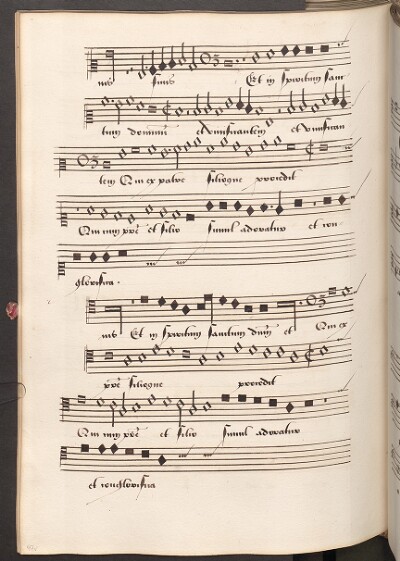 nis finis Et in Spiritum sanc
tum dominum et vivificantem et vivifican
tem Qui ex patre filioque procedit
Qui cum patre et filio simul adoratur et con
glorificatur
nis Et in spiritum sanctum dominum et Qui ex
patre filioque procedit
Qui cum patre et filio simul adoratur
et conglorificatur